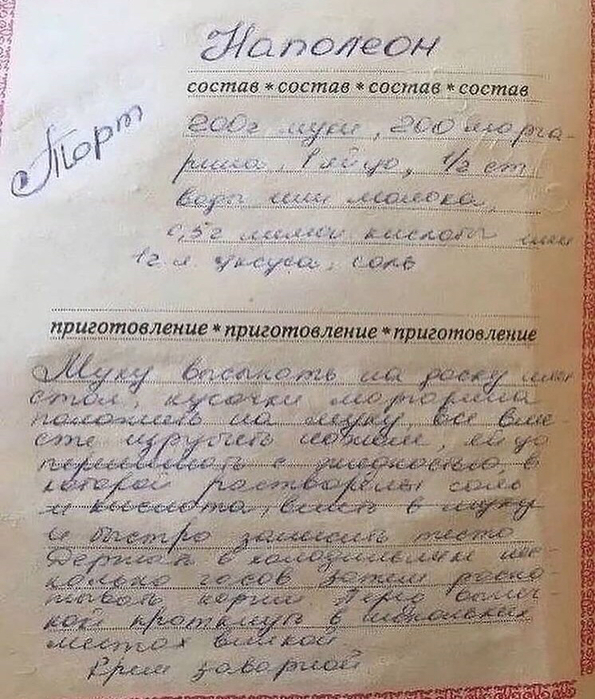 Наполеон
состав * состав * состав * состав
Торт
200г муки, 200 марга-
рина, 1 яйцо, 1/2 ст
воды или молока,
0,5г лимон кислоты или
1г л. уксуса, соль
приготовление * приготовление * приготовление
Муку высыпать на доску или
стол, кусочки маргарина
положить на муку, все вме-
сте изрубить ножом, яйцо
перемешать с жидкостью, в
которой растворены соль
и кислота, влить в муку
и быстро замесить тесто
Держать в холодильнике нес-
колько часов Затем раска-
тывать коржи Перед выпеч-
кой проткнуть в нескольких
местах вилкой
Крем заварной